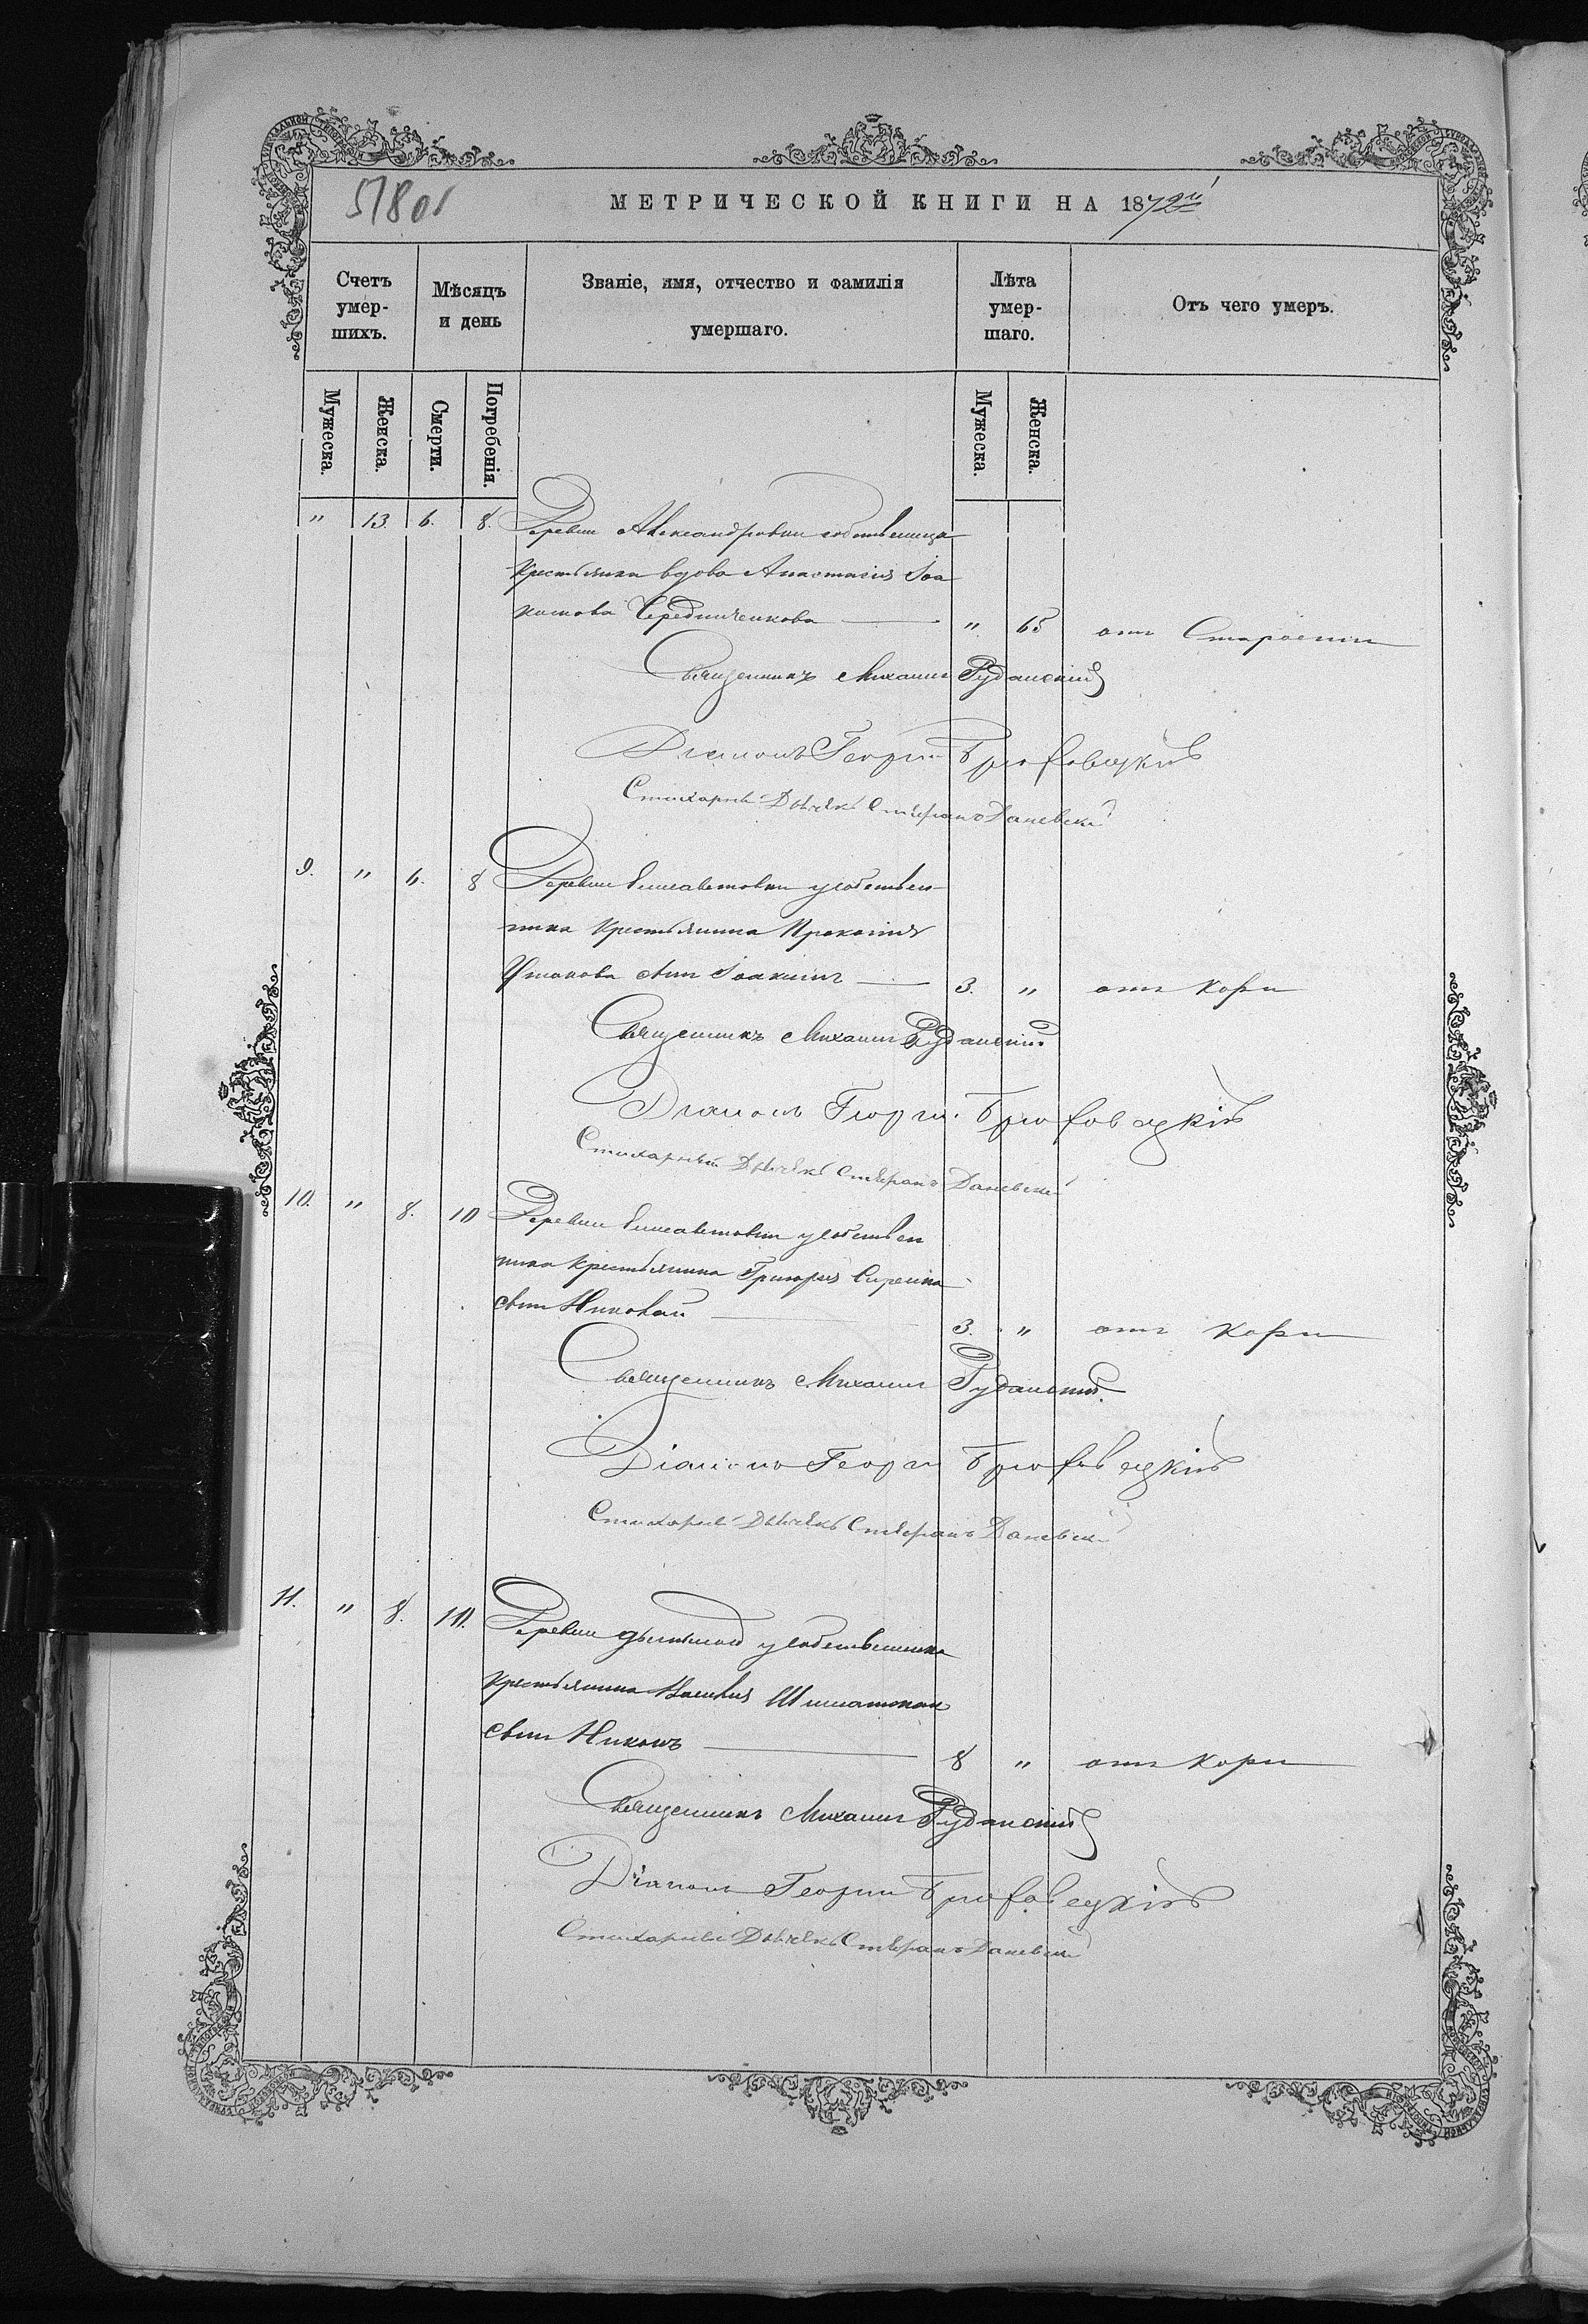 МЕТРИЧЕСКОЙ КНИГИ НА 1872й
Счетъ умершихъ. Мѣсяцъ и день Званіе, имя, отчество и фамилія умершаго. Лѣта умершаго. Отъ чего умеръ.
Мужеска. Женска. Смерти. Погребенія. Мужеска. Женска.
" 13. 6. 8. Деревни Александровки собственница
крестьянка вдова Анастасія Іоа
кимова Чередниченкова — " 65 отъ Старости
Священникъ Михаилъ Руданскій
Діаконъ Георгій Брюховецкій
Стихарный Дьячекъ Стефанъ Даневскій
9. " 6. 8 Деревни Елисаветовки у собствен
ника крестьянина Прокопія
сынъ Іоакимъ — 3. " отъ кори
Священникъ Михаилъ Руданскій
Діаконъ Георгій Брюховецкій
Стихарный Дьячекъ Стефанъ Даневскій
10. " 8. 10 Деревни Елисаветовки у собствен
ника крестьянина Григорія
сынъ Николай — 3. " отъ кори
Священникъ Михаилъ Руданскій.
Діаконъ Георгій Брюховецкій
Стихарный Дьячекъ Стефанъ Даневскій
11. " 8. 10. Деревни у собственника
крестьянина Василія
сынъ Никонъ — 8 " отъ кори
Священникъ Михаилъ Руданскій
Діаконъ Георгій Брюховецкій
Стихарный Дьячекъ Стефанъ Даневскій